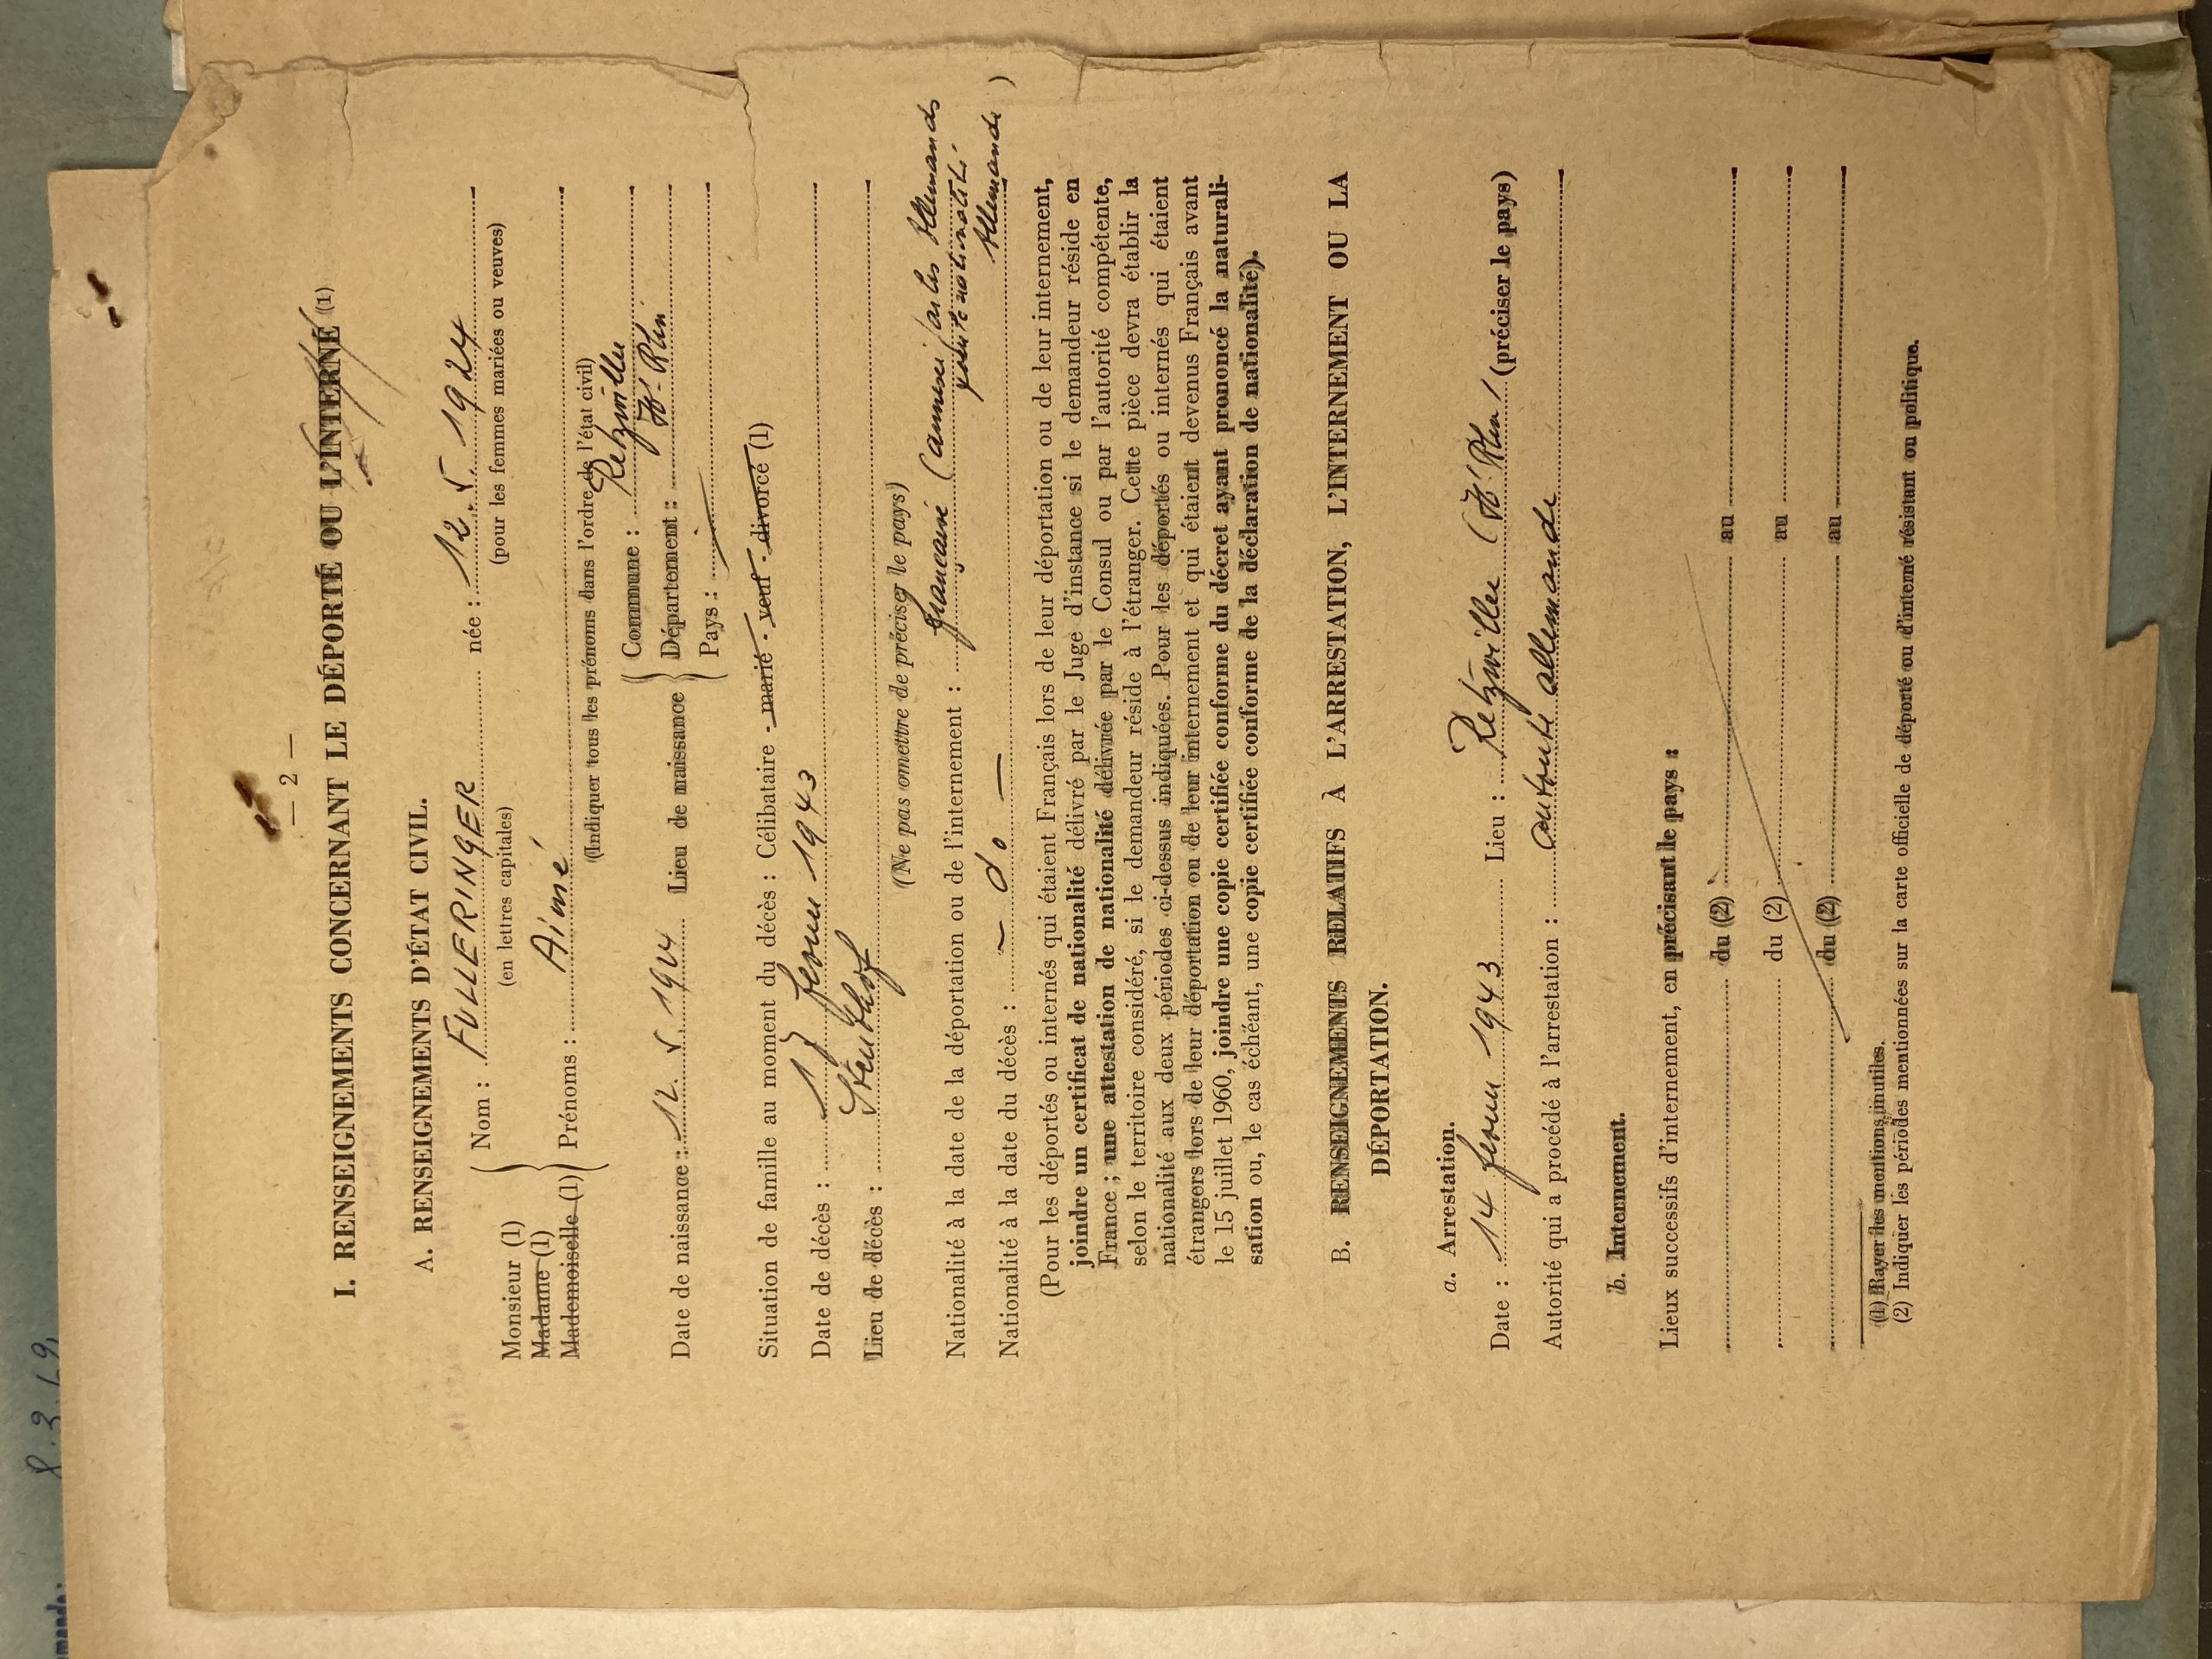 8.3.69
— 2 —
I. RENSEIGNEMENTS CONCERNANT LE DÉPORTÉ OU L'INTERNÉ (1)
A. RENSEIGNEMENTS D'ÉTAT CIVIL.
Monsieur (1)
Madame (1)
Mademoiselle (1)
Nom : FULLERINGER née : 12. 5. 1924
(en lettres capitales) (pour les femmes mariées ou veuves)
Prénoms : Aimé
(Indiquer tous les prénoms dans l'ordre de l'état civil)
Date de naissance : 12. 5. 1924 Lieu de naissance
Commune : Retzwiller
Département : Ht-Rhin
Pays :
Situation de famille au moment du décès : Célibataire - marié - veuf - divorcé (1)
Date de décès : 17 1943
Lieu de décès : Struthof
(Ne pas omettre de préciser le pays)
Nationalité à la date de la déportation ou de l'internement : française (annexé par les Allemands
nationalité
Allemande)
Nationalité à la date du décès : — do —
(Pour les déportés ou internés qui étaient Français lors de leur déportation ou de leur internement,
joindre un certificat de nationalité délivré par le Juge d'instance si le demandeur réside en
France ; une attestation de nationalité délivrée par le Consul ou par l'autorité compétente,
selon le territoire considéré, si le demandeur réside à l'étranger. Cette pièce devra établir la
nationalité aux deux périodes ci-dessus indiquées. Pour les déportés ou internés qui étaient
étrangers lors de leur déportation ou de leur internement et qui étaient devenus Français avant
le 15 juillet 1960, joindre une copie certifiée conforme du décret ayant prononcé la naturali-
sation ou, le cas échéant, une copie certifiée conforme de la déclaration de nationalité).
B. RENSEIGNEMENTS RELATIFS À L'ARRESTATION, L'INTERNEMENT OU LA
DÉPORTATION.
a. Arrestation.
Date : 14 1943 Lieu : Retzwiller (Ht Rhin) (préciser le pays)
Autorité qui a procédé à l'arrestation : autorité allemande
b. Internement.
Lieux successifs d'internement, en précisant le pays :
du (2) au
du (2) au
du (2) au
(1) Rayer les mentions inutiles.
(2) Indiquer les périodes mentionnées sur la carte officielle de déporté ou d'interné résistant ou politique.